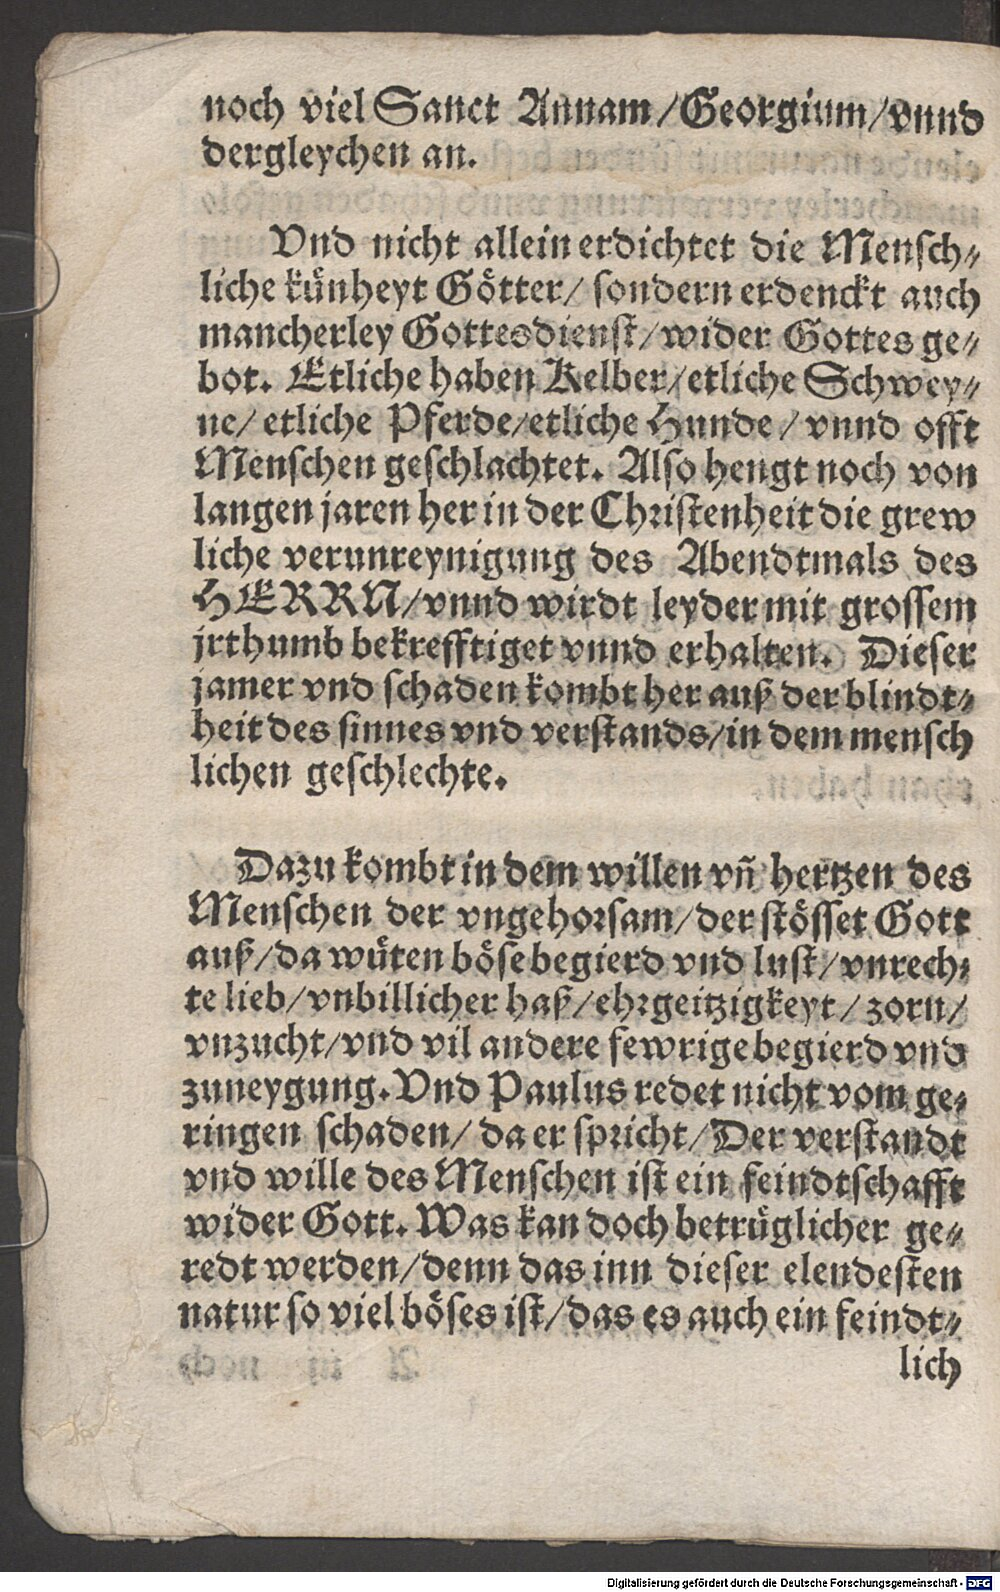 noch viel Sanct Annam/Georgium/vnnd
dergleychen an.
Vnd nicht allein erdichtet die Mensch⸗
liche künheyt Götter/ sondern erdenckt auch
mancherley Gottesdienst/wider Gottes ge⸗
bot. Etliche haben Kelber/etliche Schwey⸗
ne/ etliche Pferde/etliche Hunde/ vnnd offt
Menschen geschlachtet. Also hengt noch von
langen jaren her in der Christenheit die grew
liche verunreynigung des Abendtmals des
HERRN/vnnd wirdt leyder mit grossem
jrthumb bekrefftiget vnnd erhalten. Dieser
jamer vnd schaden kombt her auß der blindt⸗
heit des sinnes vnd verstands/in dem mensch
lichen geschlechte.
Dazu kombt in dem willen vñ hertzen des
Menschen der vngehorsam/der stösset Gott
auß/da wüten böse begierd vnd lust/vnrech⸗
te lieb/vnbillicher haß/ehrgeitzigkeyt/ zorn/
vnzucht/vnd vil andere fewrige begierd vnd
zuneygung. Vnd Paulus redet nicht vom ge⸗
ringen schaden/ da er spricht/Der verstandt
vnd wille des Menschen ist ein feindtschafft
wider Gott. Was kan doch betrüglicher ge⸗
redt werden/denn das inn dieser elendesten
natur so viel böses ist/das es auch ein feindt⸗
lich
Digitalisierung gefördert durch die Deutsche Forschungsgemeinschaft - DFG